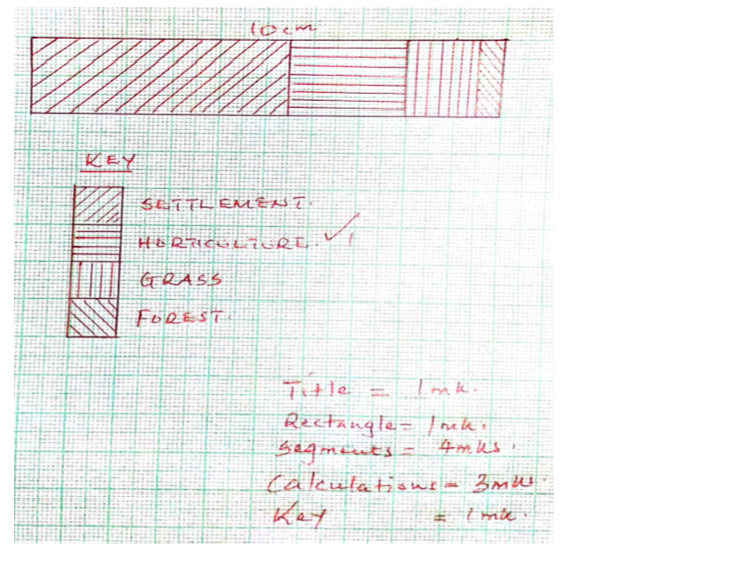 10cm
KEY
SETTLEMENT.
HORTICULTURE. ✓1
GRASS
FOREST.
Title = 1mk.
Rectangle = 1mk.
Segments = 4mks.
Calculations = 3mks.
Key = 1mk.